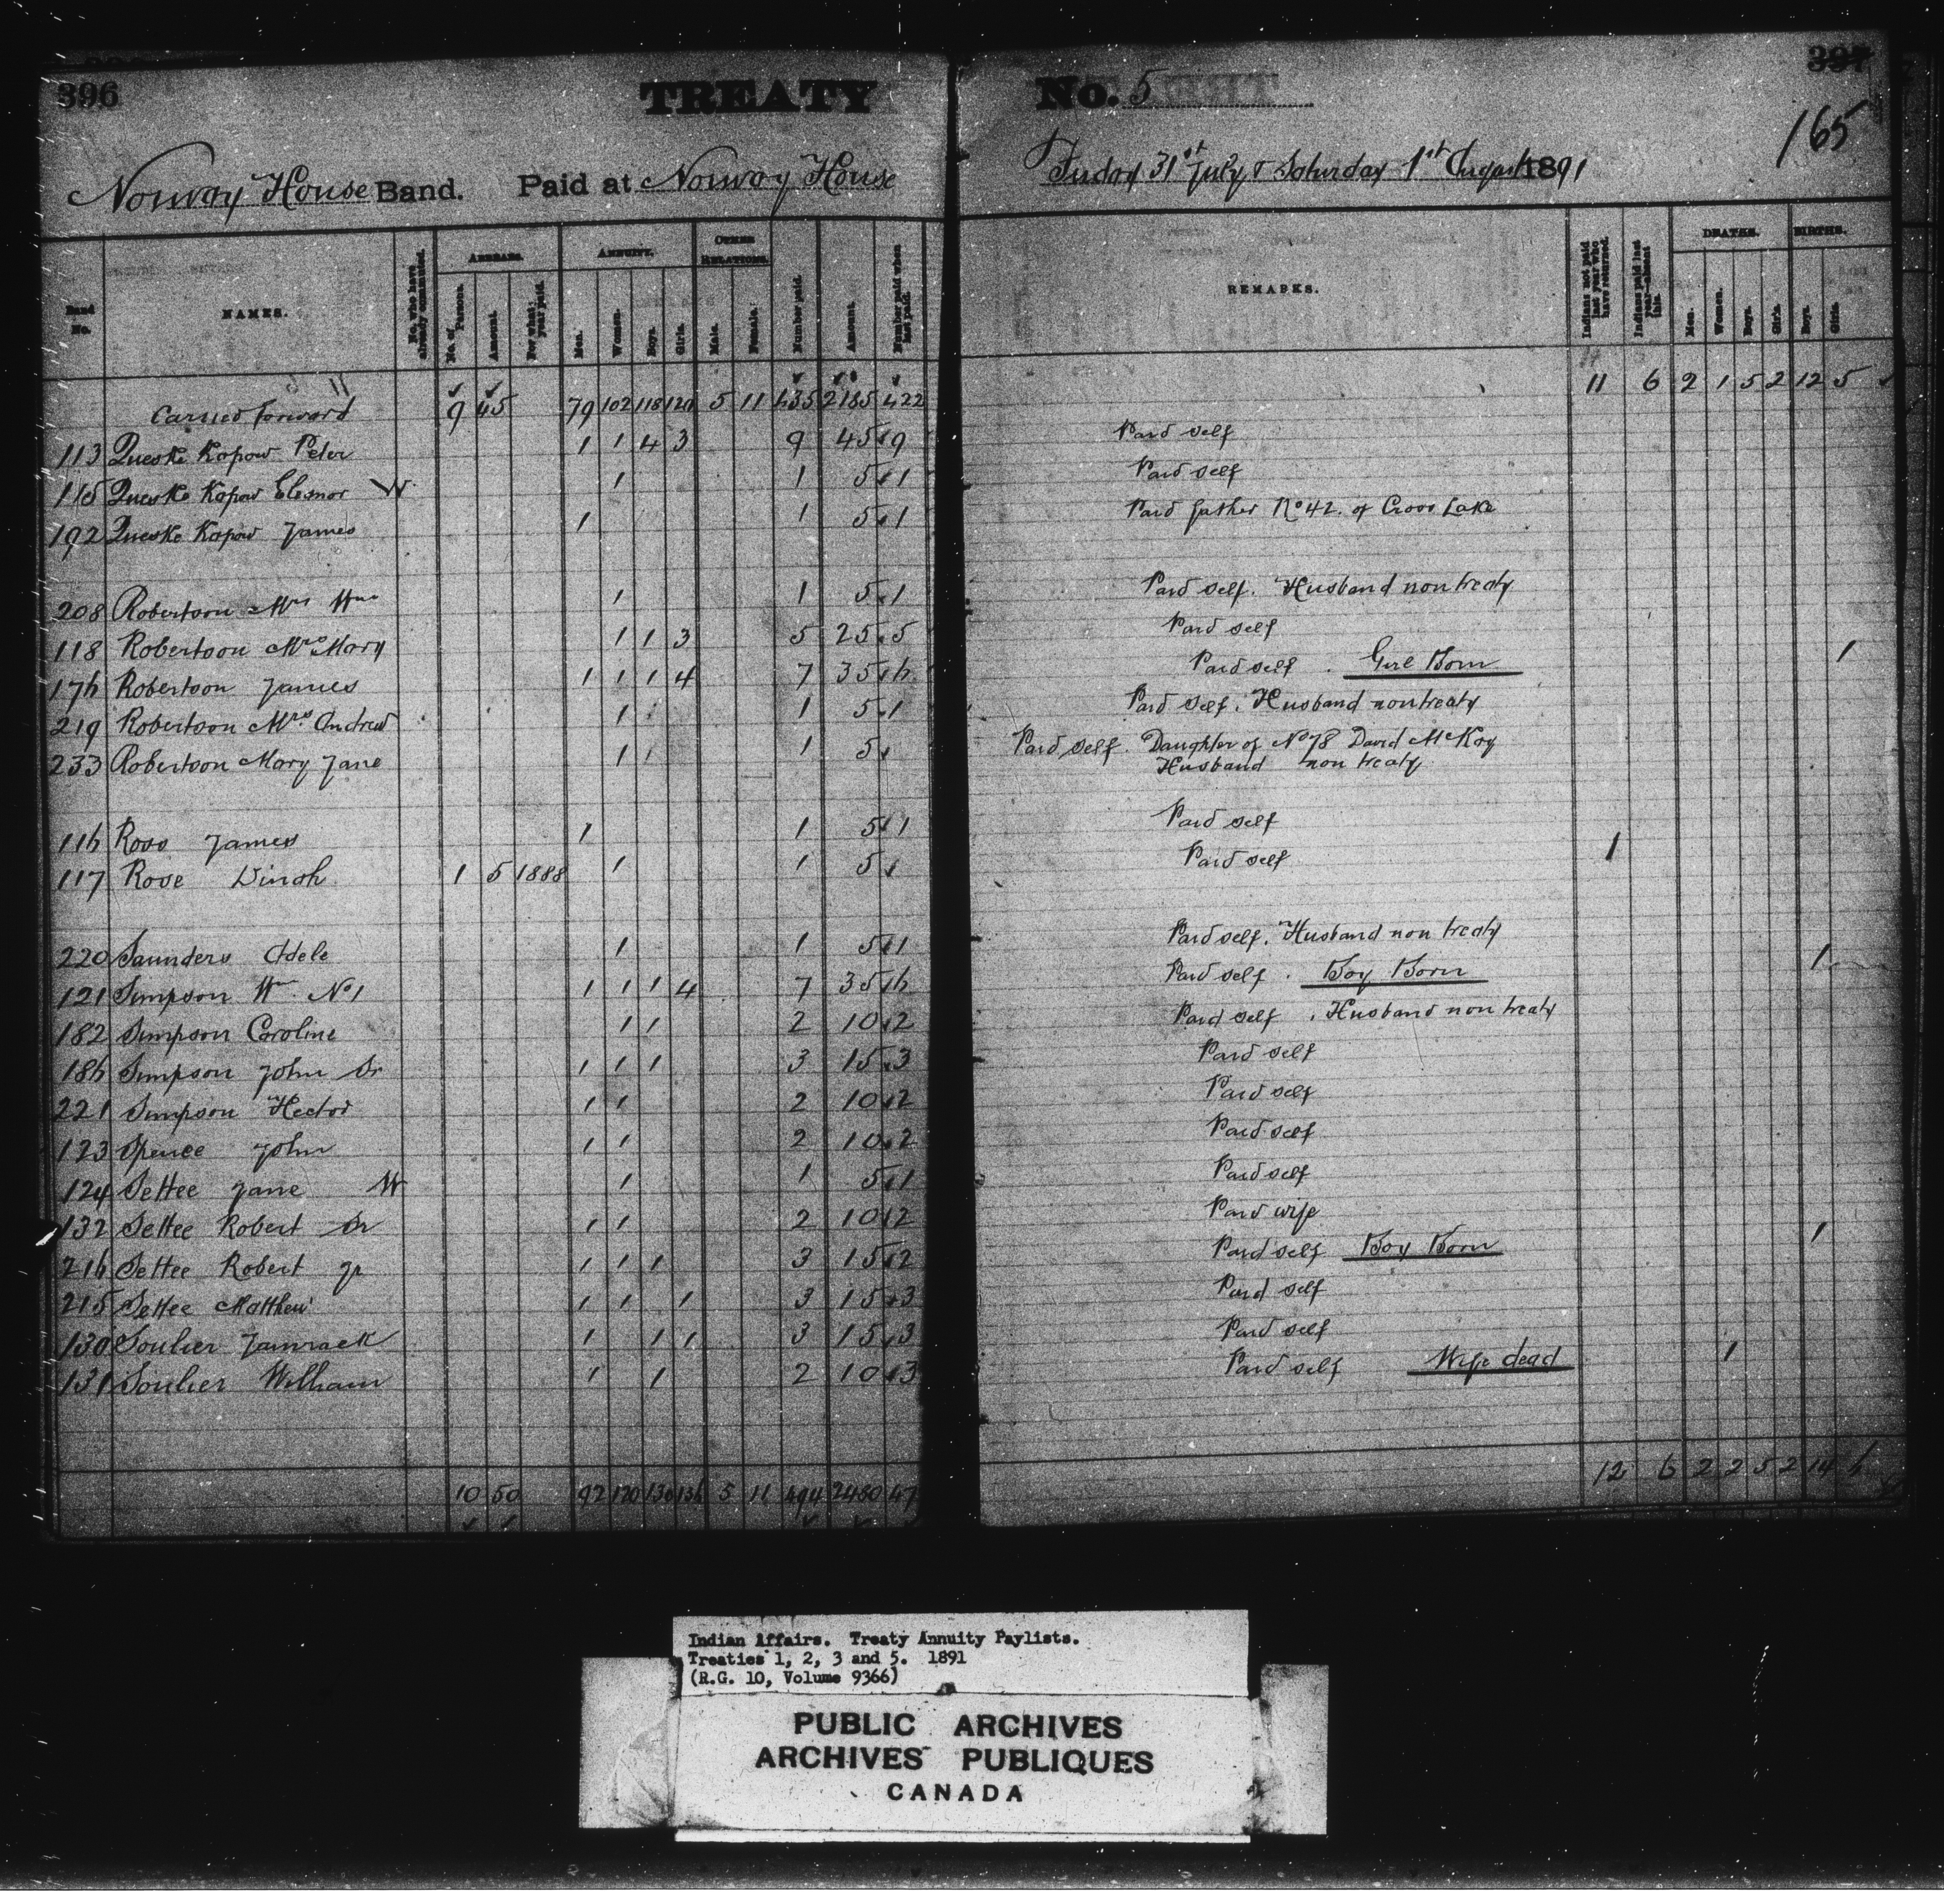 396
TREATY No. 5
397
165
Norway House Band. Paid at Norway House
Friday 31st July & Saturday 1st August 1891
Band No. NAMES. No. who have already commuted. ARREARS. No. of Persons. Amount. For what year paid. ANNUITY. Men. Women. Boys. Girls. OTHER RELATIONS. Male. Female. Number paid. Amount. Number paid when last paid. REMARKS. Indians not paid last year who have returned. Indians paid last year—absent this. DEATHS. Men. Women. Boys. Girls. BIRTHS. Boys. Girls.
Carried forward 9 45 79 102 118 120 5 11 435 2185 422 11 6 2 1 5 2 12 5
113 Queske Kapow Peter 1 1 4 3 9 45 9 Paid self
115 Queske Kapow Eleanor W 1 1 5 1 Paid self
192 Queske Kapow James 1 1 5 1 Paid father No 42. of Cross Lake
208 Robertson Mrs Wm 1 1 5 1 Paid self. Husband non treaty
118 Robertson Mrs Mary 1 1 3 5 25 5 Paid self
176 Robertson James 1 1 1 4 7 35 6 Paid self. Girl Born 1
219 Robertson Mrs Andrew 1 1 5 1 Paid self. Husband non treaty
233 Robertson Mary Jane 1 1 5 Paid self. Daughter of No 78 David McKay
Husband non treaty
116 Ross James 1 1 5 1 Paid self
117 Rose Dinah 1 5 1888 1 1 5 Paid self 1
220 Saunders Adele 1 1 5 1 Paid self. Husband non treaty
121 Simpson Wm No 1 1 1 1 4 7 35 6 Paid self. Boy Born 1
182 Simpson Caroline 1 1 2 10 2 Paid self. Husband non treaty
186 Simpson John Sr 1 1 1 3 15 3 Paid self
221 Simpson Hector 1 1 2 10 2 Paid self
123 Spence John 1 1 2 10 2 Paid self
124 Settee Jane W 1 1 5 1 Paid self
132 Settee Robert Sr 1 1 2 10 2 Paid wife
216 Settee Robert Jr 1 1 1 3 15 2 Paid self Boy Born 1
215 Settee Matthew 1 1 1 3 15 3 Paid self
130 Soulier Jamrack 1 1 1 3 15 3 Paid self
131 Soulier William 1 1 2 10 3 Paid self Wife dead 1
10 50 92 120 130 136 5 11 494 2480 47 12 6 2 2 5 2 14 6
Indian Affairs. Treaty Annuity Paylists.
Treaties 1, 2, 3 and 5. 1891
(R.G. 10, Volume 9366)
PUBLIC ARCHIVES
ARCHIVES PUBLIQUES
CANADA